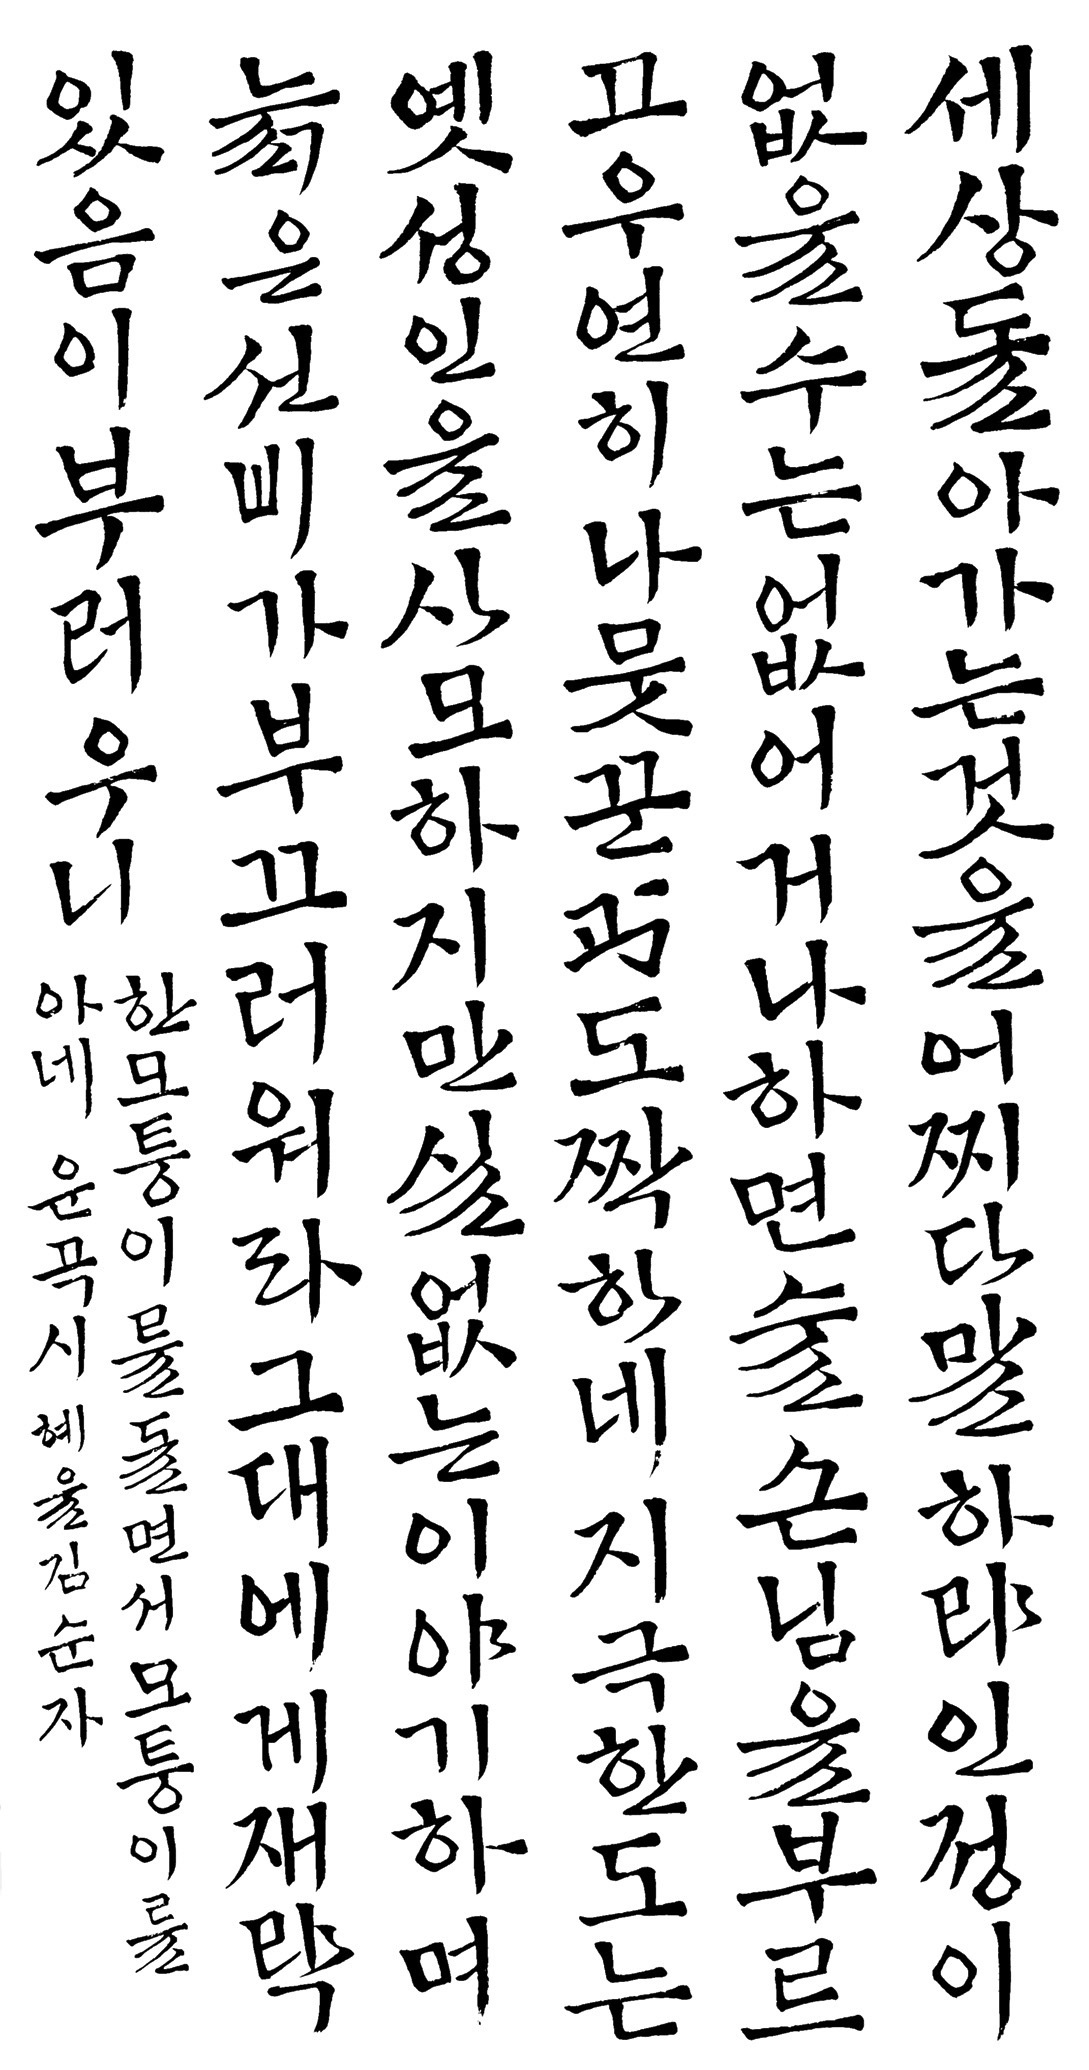 세상돌아가는것을어찌다말하랴인정이
없을수는없어거나하면술손님을부르
고우연히나뭇꾼과도짝하네지극한도는
옛성인을사모하지만실없는이야기하며
늙은선비가부끄러워라그대에게재략
있음이부러우니
한모퉁이를돌면서모퉁이를
아네 윤곡시 혜율김순자